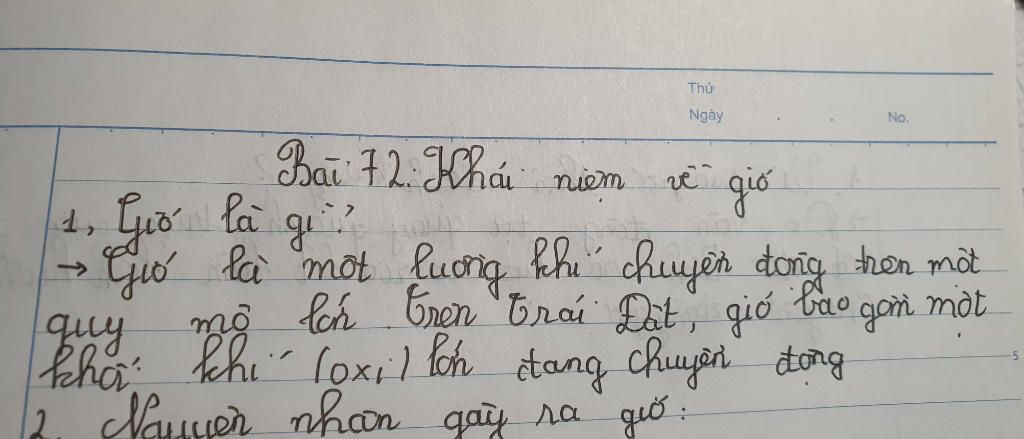 Thứ
Ngày . . No.
Bài 72: Khái niệm về gió
1, Gió là gì?
→ Gió là một luồng khí chuyển động trên một
quy mô lớn trên trái Đất, gió bao gồm một
khối khí (oxi) lớn đang chuyển động
5
2. Nguyên nhân gây ra gió: